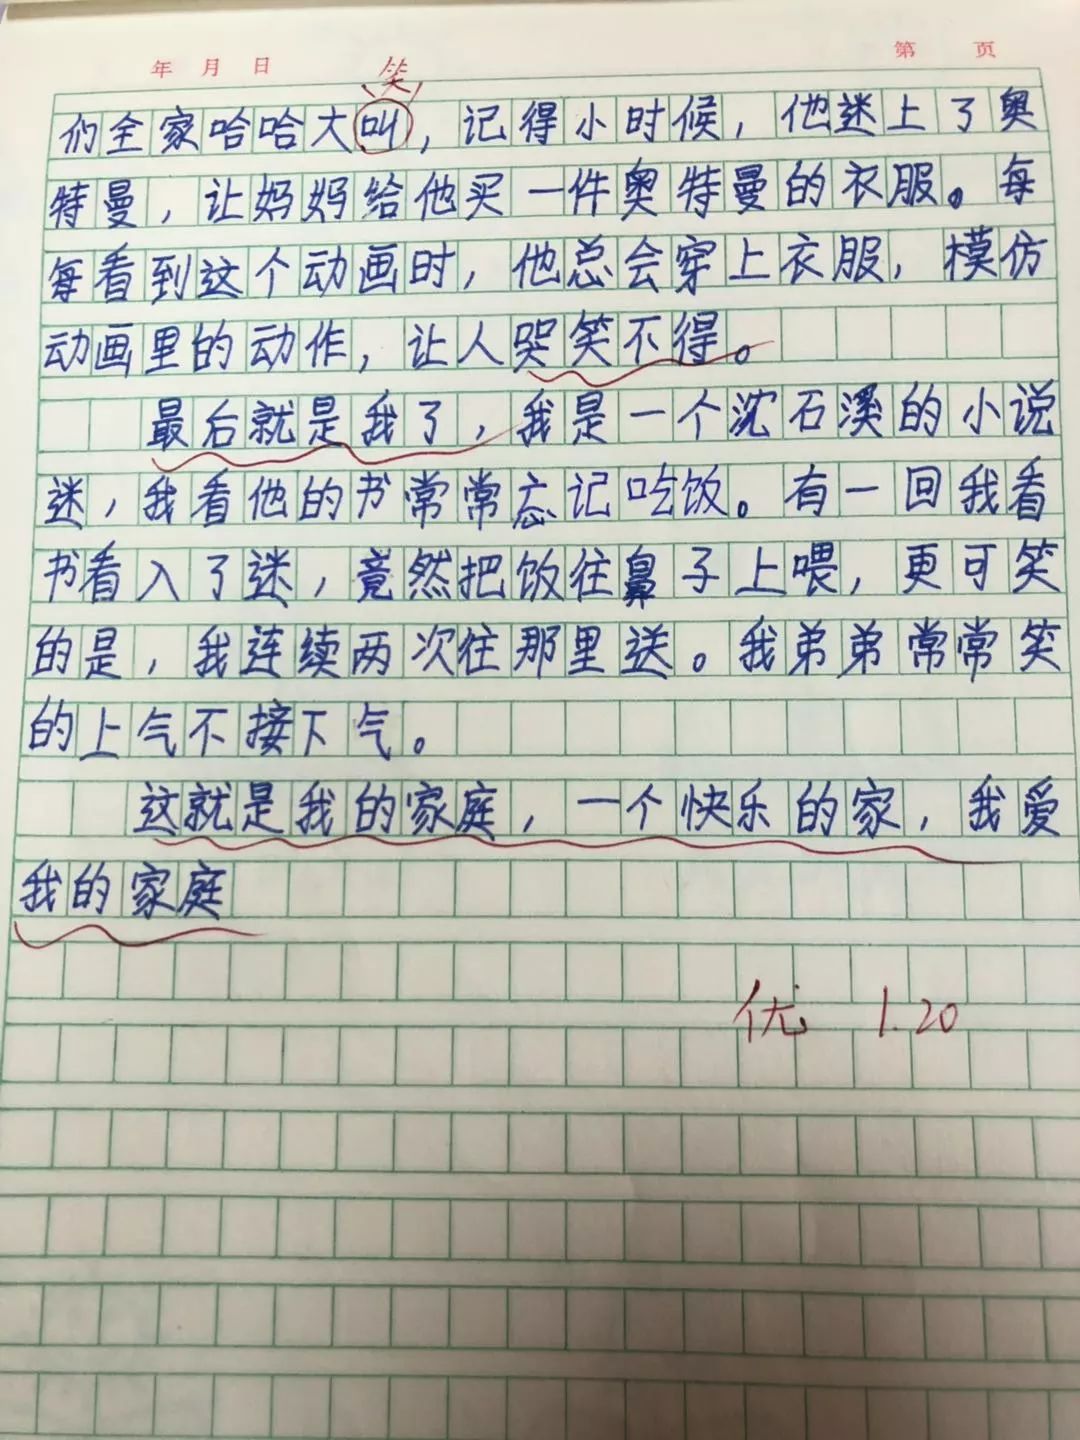 年 月 日 第 页
笑
们全家哈哈大叫，记得小时候，他迷上了奥
特曼，让妈妈给他买一件奥特曼的衣服。每
每看到这个动画时，他总会穿上衣服，模仿
动画里的动作，让人哭笑不得。
最后就是我了，我是一个沈石溪的小说
迷，我看他的书常常忘记吃饭。有一回我看
书看入了迷，竟然把饭往鼻子上喂，更可笑
的是，我连续两次往那里送。我弟弟常常笑
的上气不接下气。
这就是我的家庭，一个快乐的家，我爱
我的家庭
优 1.20